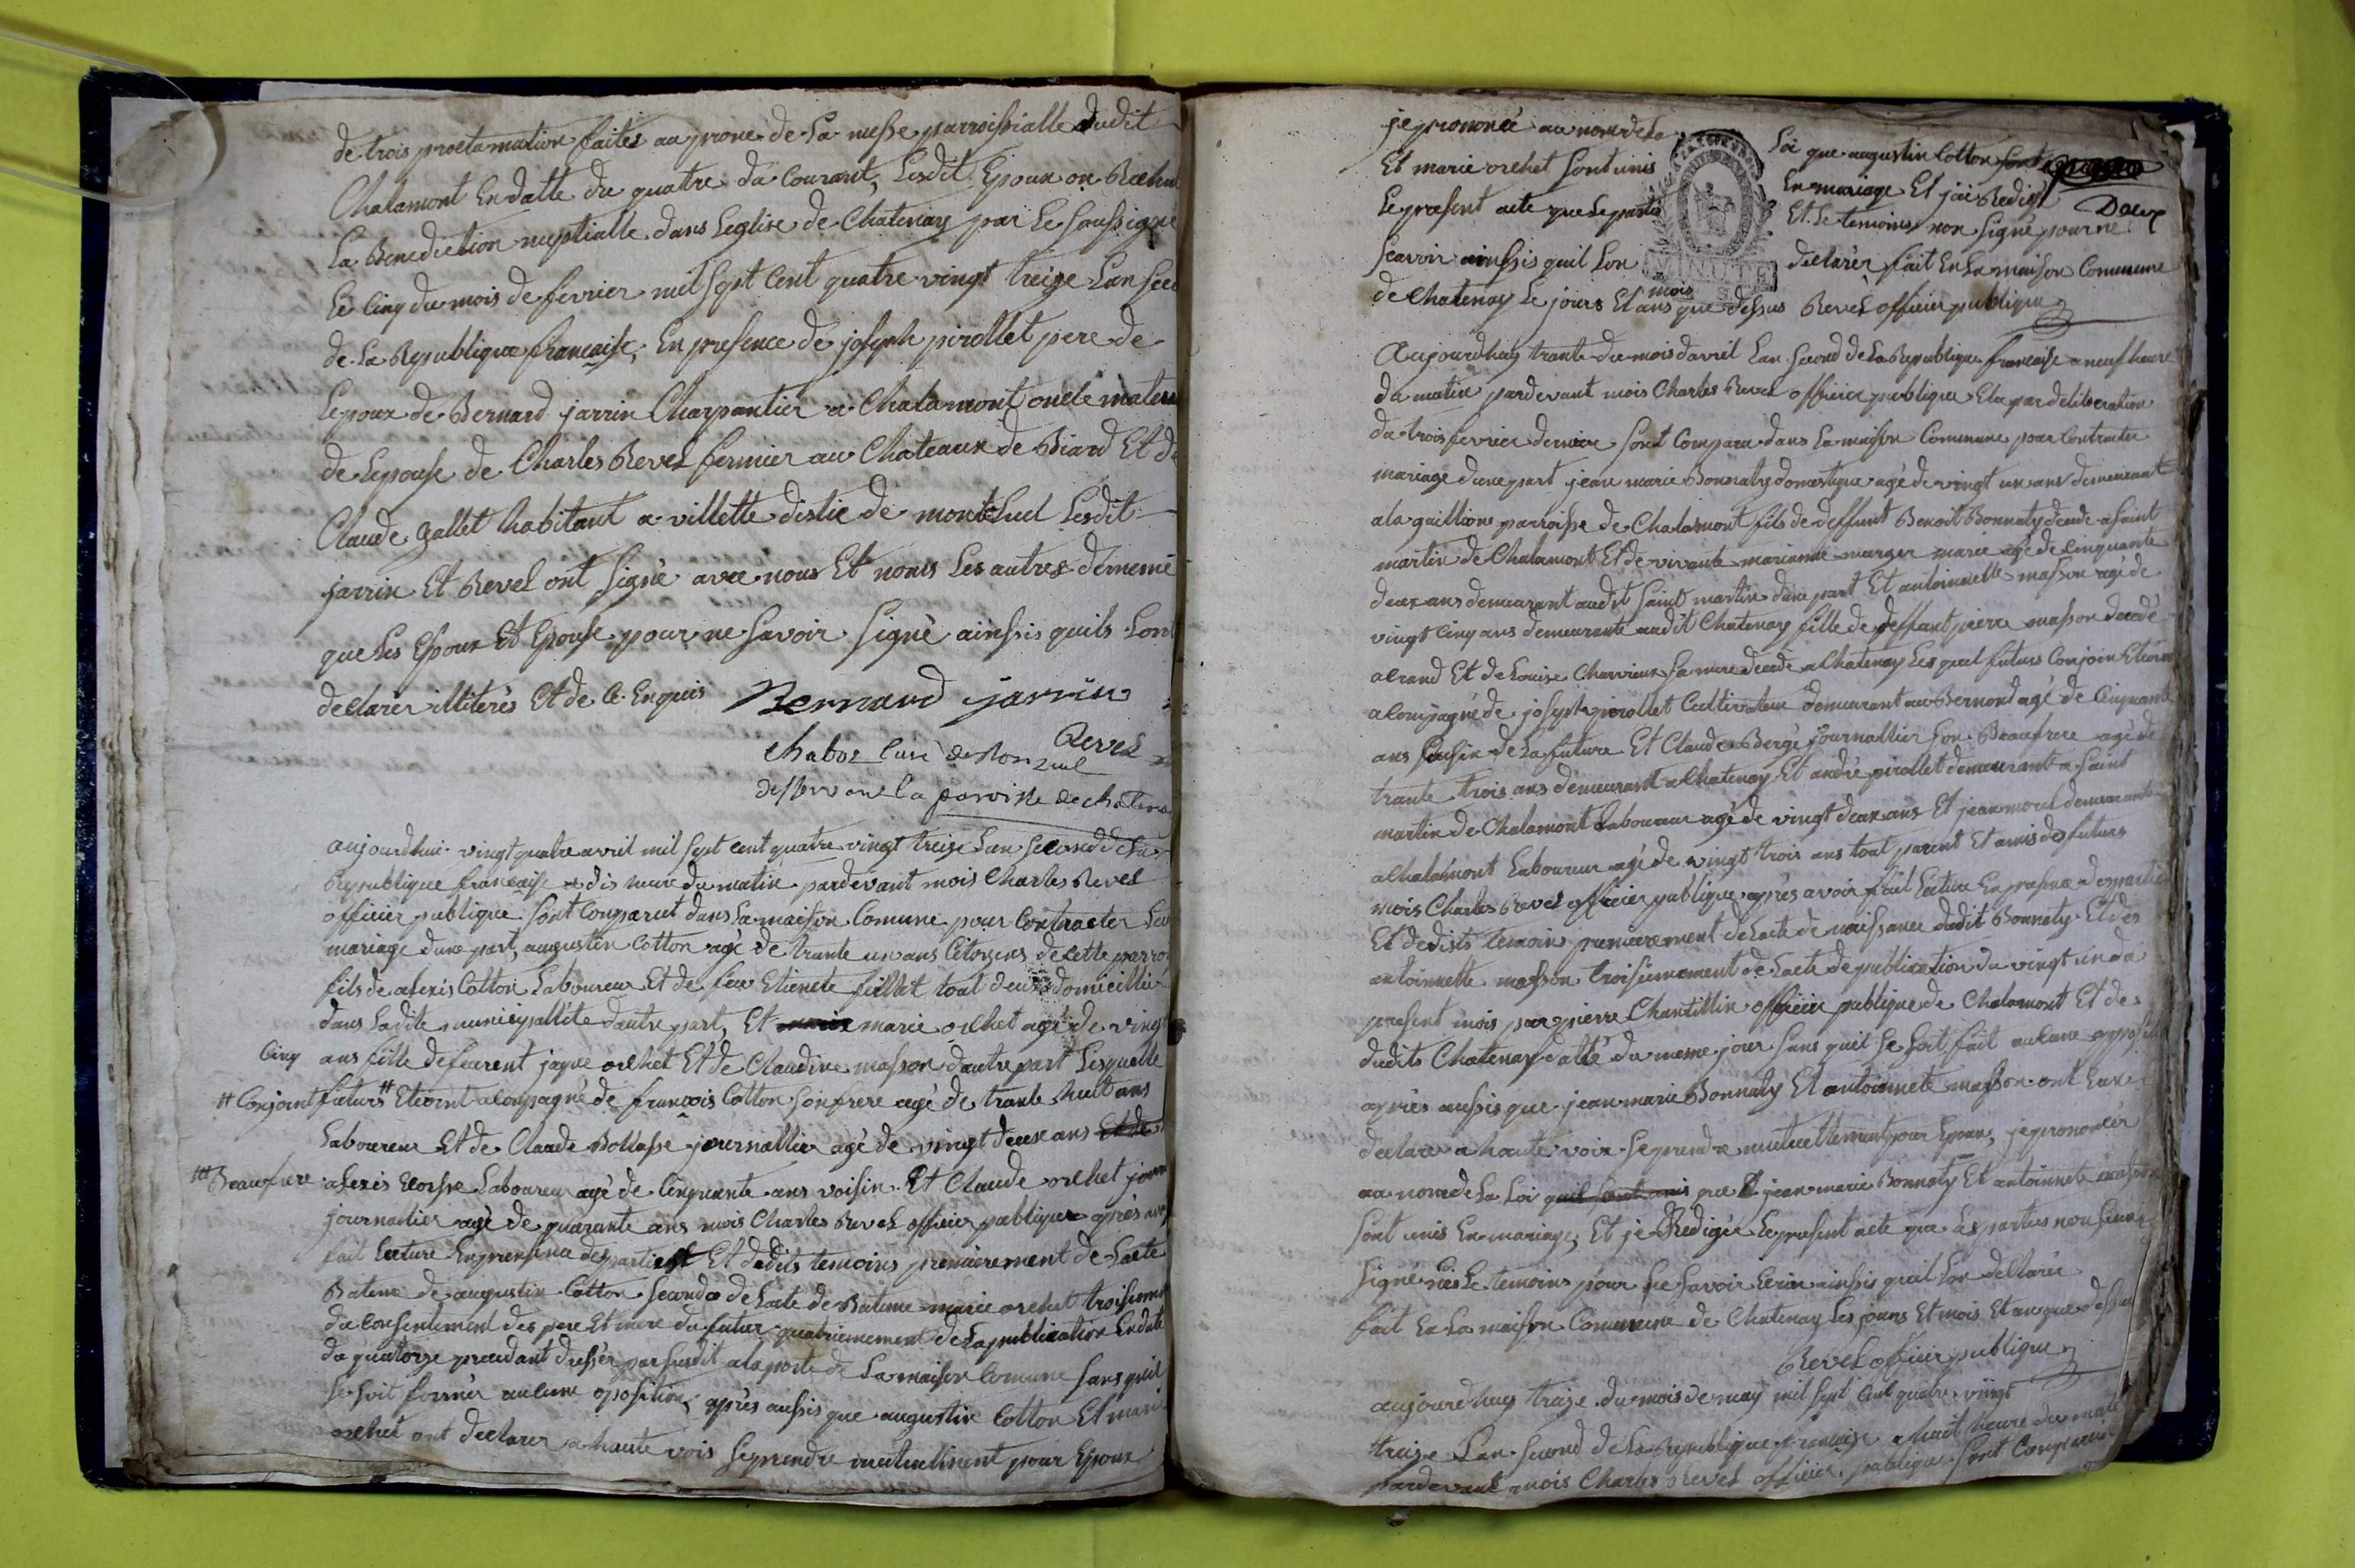 de trois proclamation faites au prone de la messe parroissialle dudit
Chalamont En datte du quatre du Courant, Lesdit Epoux on
La Benediction nuptialle dans Leglise de Chatenay par Le soussigné
Le Cinq du mois de fevrier mil sept Cent quatre vingt treize Lan
de La Republique francaise, En presence de joseph pirollet pere de
Lepoux de Bernard jarrin Charpantier a Chalamont oncle
de Lepouse de Charles Revel fermier au Chateaux de Biard Et de
Claude gallet habitant a villette distic de montluel Lesdit
jarrin Et Revel ont signé avec nous Et nomis Les autres dememe
que Les Epoux Et Epouse pour ne savoir signé ainssis quils Lont
declarer illiterés Et de Ce Enquis Bernard jarrin
Revel
chaboz curé de
desservant la paroisse de
aujourdhui vingt quatre avril mil sept cent quatre vingt treize Lan second de La
Republique francaise a dis heure du matin pardevant mois Charles Revel
officier publique sont Comparut dans La maison Comune pour Contracter
mariage dune part, augustin Cotton agé de trante un ans Citoyens de Cette
fils de alexis Cotton Laboureur Et de feu Etienete fillet tout deux domicillier
dans Ladite municipallité dautre part, Et marie orchet agé de vingt
Cinq ans fille defeurent jaque orchet Et de Claudine masson dautre part Lesquelle
# Conjoint futurs # Etoient acompagné de francois Cotton son frere agé de trante huit ans
Laboureur Et de Claude Bollasse journallier agé de vingt deux ans Et de
Beaufrere alexis Laboureur agé de Cinquante ans voisin Et Claude orchet
journallier agé de quarante ans mois Charles Revel officier publique après
fait Lecture En presence des parties Et dedits temoins premièrement de Lacte
Bateme de augustin Cotton second de Lacte de Bateme marie orchet
du Consentement des pere Et mere du futur quatriemement de La publication En date
du quatorze precedant dressér par susdit a la porte de La maison Comune sans quil
se soit formér aucune oposition, après aussis que augustin Cotton Et
orchet ont declarer a haute vois se prendre mutuelment pour Epoux
je prononcé au nom de La Loi que augustin Cotton
Et marie orchet sont unis En mariage Et jai Redigé
Le present acte que Le partis Et Le temoins non signé pour ne Deux
scavoir ainssis quil Lon declarér fait En La maison Commune
MINUTE
mois
de Chatenay Le jours Et ans que dessus Revel officier publique
Aujourdhuy trante du mois davril Lan second de La Republique francaise a neuf heure
du matin pardevant mois Charles Revel officier publique Elu par deliberation
du trois fevrier dernier sont Comparu dans La maison Commune pour Contracter
mariage dune part jean marie Bonnaty domestique agé de vingt un ans demeurant
a la parroisse de Chalamont fils de deffunt Benoit Bonnaty decede a saint
martin de Chalamont Et de vivante marianne agé de Cinquante
deux ans demeurant audit saint martin dune part Et antoinnette masson agé de
vingt Cinq ans demeurante audit Chatenay fille de deffunt pierre masson decedé
a Et de Louise sa mere decedé a Chatenay Les quel futurs Conjoin
acompagné de joseph pirollet Cultivateur demeurant au Bernond agé de Cinquante
ans Cousin de La future Et Claude Bergé journallier son Beaufrere agé de
trante trois ans demeurant a Chatenay Et andré pirollet demeurante a saint
martin de Chalamont Laboureur agé de vingt deux ans Et jean demeurante
a Chalamont Laboureur agé de vingt trois ans tout parent Et amis des futurs
mois Charles Revel officier publique après avoir fait Lecture En presence
Et dedits temoins premierement de Lacte de naissance dudit Bonnaty Et des
antoinnette masson troisiemement de Lacte de publication du vingt un du
present mois par pierre Chantillin officier publique de Chalamont Et de
dudits Chatenay datté du meme jour sans quil se soit fait aucune
après aussis que jean marie Bonnaty Et antoinnete masson ont
declarer a haute voix se prendre mutuellement pour Epoux, je prononcér
au nom de La Loi quil sont unis que jean marie Bonnaty Et antoinnete masson
sont unis En mariage, Et je Redigér Le present acte que Les parties non
signé Le temoins pour ne savoir Ecrire ainssis quil Lon declarér
fait En La maison Commune de Chatenay Les jours Et mois Et an que dessus
Revel officier publique
aujourdhuy treize du mois de may mil sept Cent quatre vingt
treize Lan second de La Republique francaise a huit heure du
pardevant mois Charles Revel officier publique sont